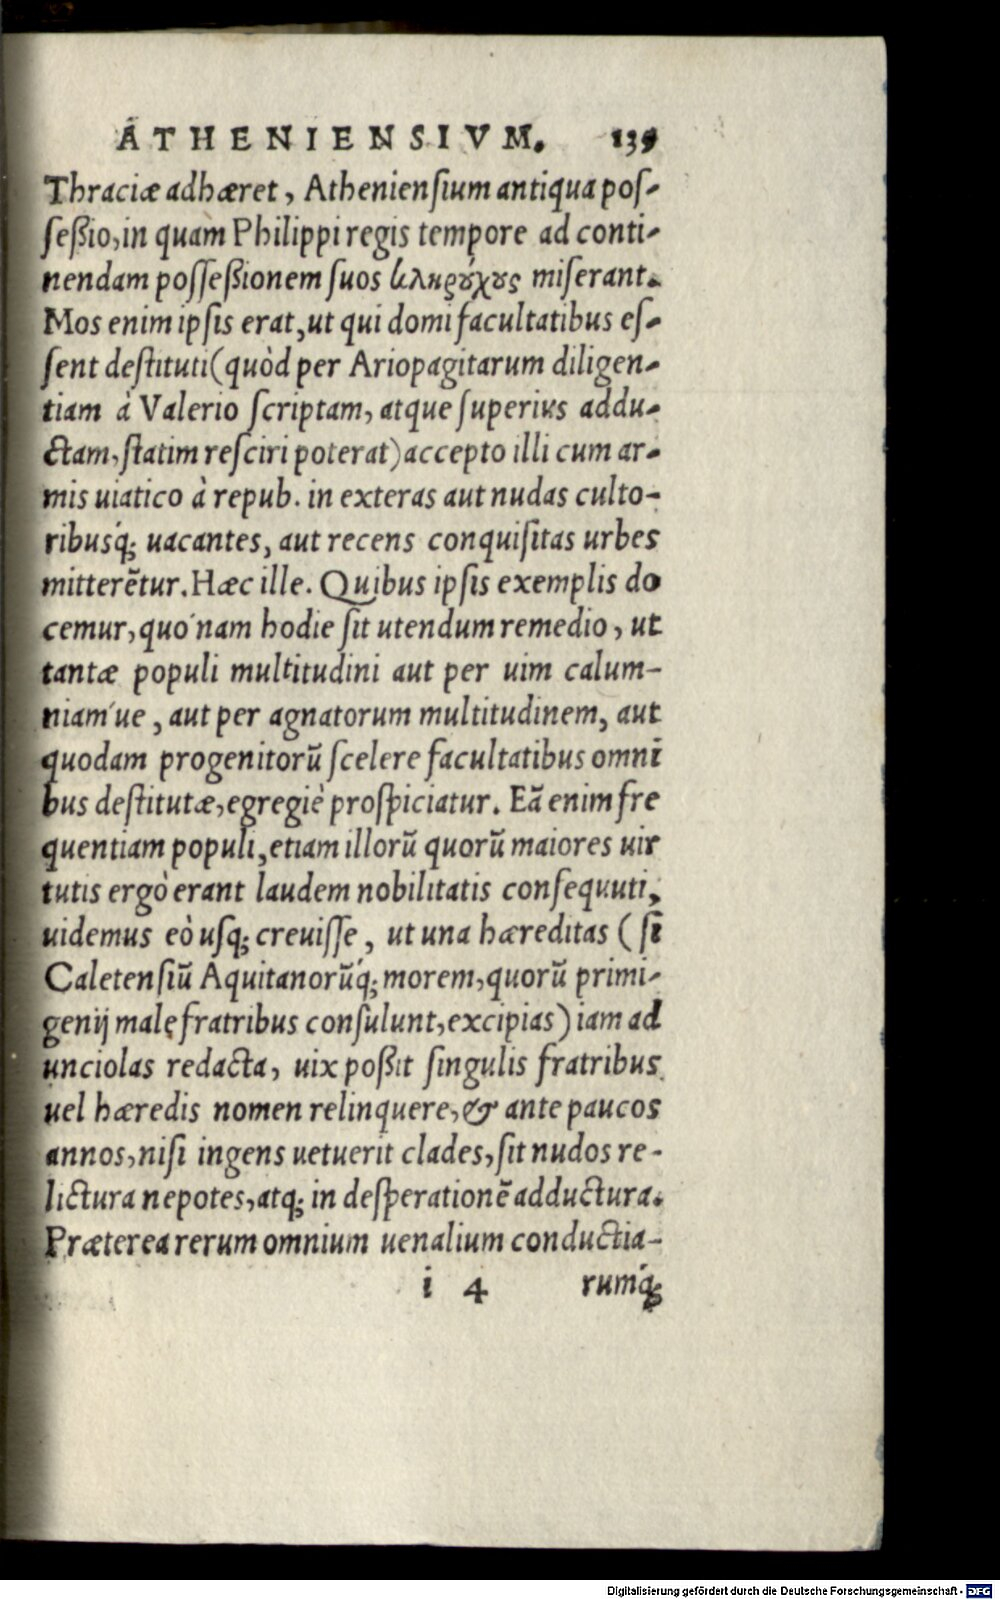 ATHENIENSIVM. 135
Thraciæ adhæret, Atheniensium antiqua pos-
seßio, in quam Philippi regis tempore ad conti-
nendam posseßionem suos κληρούχους miserant.
Mos enim ipsis erat, ut qui domi facultatibus es-
sent destituti (quòd per Ariopagitarum diligen-
tiam à Valerio scriptam, atque superius addu-
ctam, statim resciri poterat) accepto illi cum ar-
mis uiatico à repub. in exteras aut nudas culto-
ribusq́; uacantes, aut recens conquisitas urbes
mitterẽtur. Hæc ille. Quibus ipsis exemplis do
cemur, quo´nam hodie sit utendum remedio, ut
tantæ populi multitudini aut per uim calum-
niam´ue, aut per agnatorum multitudinem, aut
quodam progenitorũ scelere facultatibus omni
bus destitutæ, egregiè prospiciatur. Eã enim fre
quentiam populi, etiam illorũ quorũ maiores uir
tutis ergò erant laudem nobilitatis consequuti,
uidemus eò usq; creuisse, ut una hæreditas (si
Caletensiũ Aquitanorũq́; morem, quorũ primi-
genij malę fratribus consulunt, excipias) iam ad
unciolas redacta, uix poßit singulis fratribus
uel hæredis nomen relinquere, & ante paucos
annos, nisi ingens uetuerit clades, sit nudos re-
lictura nepotes, atq; in desperationẽ adductura.
Præterea rerum omnium uenalium conductia-
i 4 rumq́;
Digitalisierung gefördert durch die Deutsche Forschungsgemeinschaft - DFG